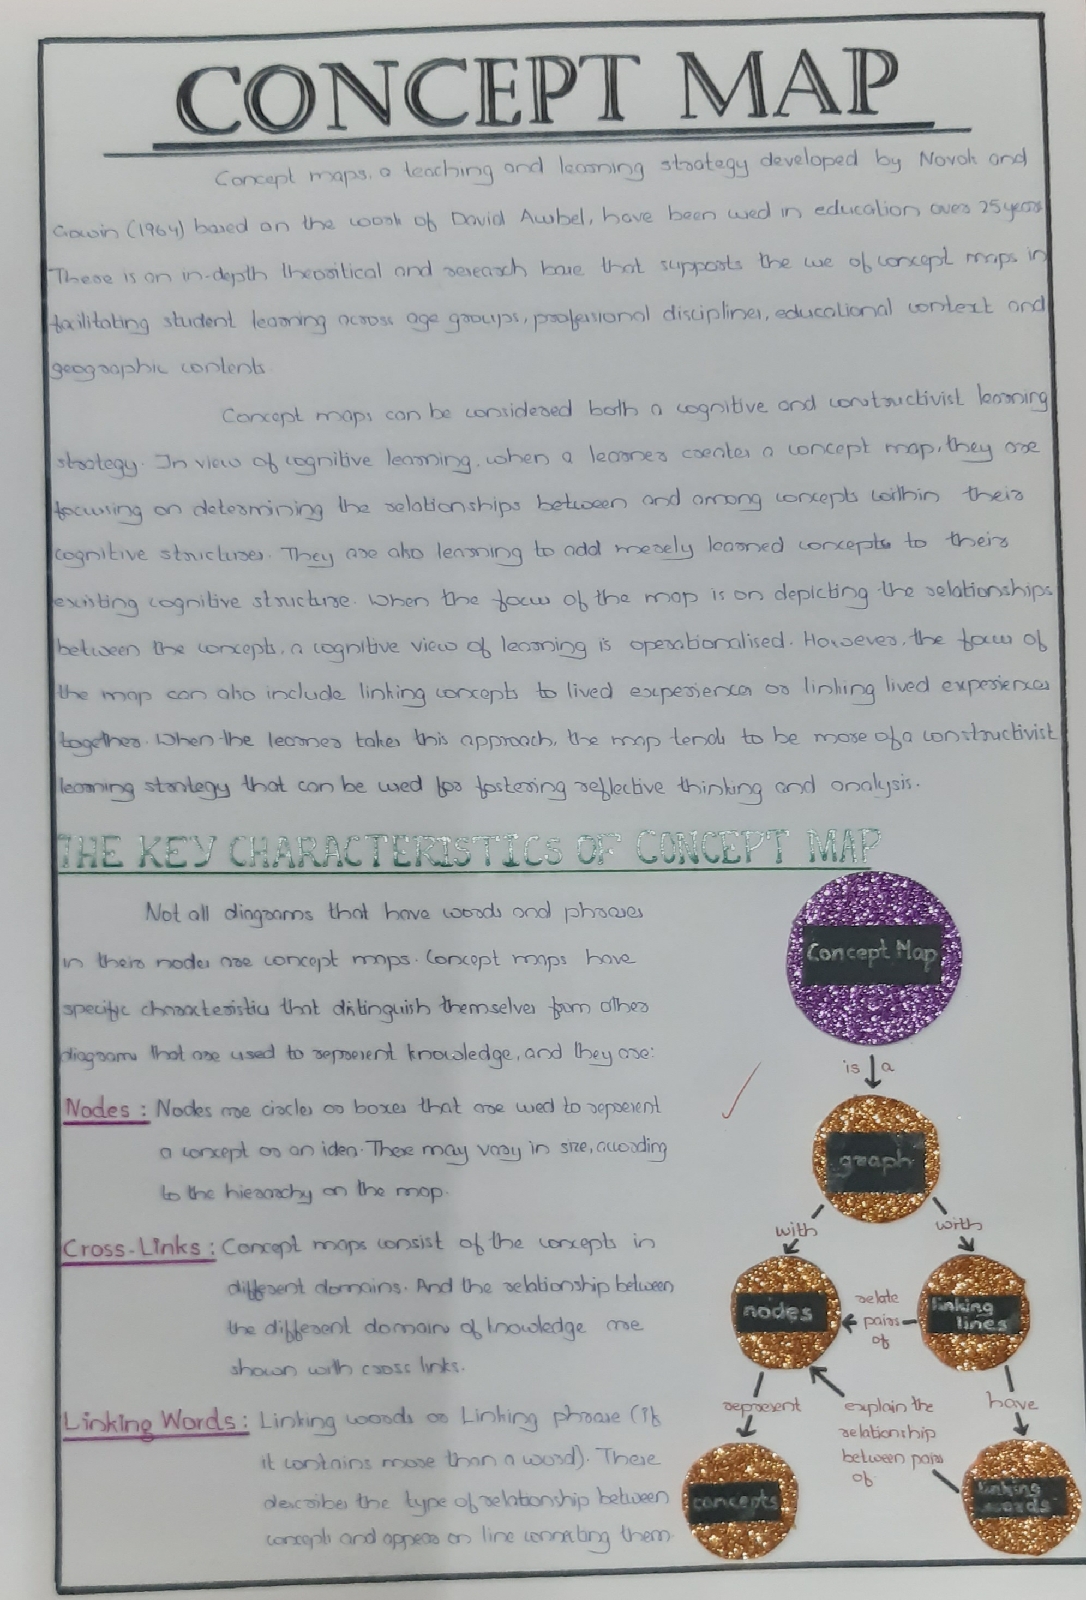 CONCEPT MAP
Concept maps, a teaching and learning strategy developed by Novak and
Gowin (1964) based on the work of David Awbel, have been used in education over 25 years
There is an in-depth theoritical and research base that supports the use of concept maps in
facilitating student learning across age groups, professional disciplines, educational context and
geographic contents.
Concept maps can be considered both a cognitive and constructivist learning
strategy. In view of cognitive learning, when a learner creates a concept map, they are
focusing on determining the relationships between and among concepts within their
cognitive structures. They are also learning to add merely learned concepts to their
existing cognitive structure. When the focus of the map is on depicting the relationships
between the concepts, a cognitive view of learning is operationalised. However, the focus of
the map can also include linking concepts to lived experiences or linking lived experiences
together. When the learner takes this approach, the map tends to be more of a constructivist
learning strategy that can be used for fostering reflective thinking and analysis.
THE KEY CHARACTERISTICS OF CONCEPT MAP
Not all diagrams that have words and phrases
in their nodes are concept maps. Concept maps have
specific characteristics that distinguish themselves from other
diagrams that are used to represent knowledge, and they are:
Nodes : Nodes are circles or boxes that are used to represent
a concept or an idea. There may vary in size, according
to the hierarchy on the map.
Cross-Links : Concept maps consist of the concepts in
different domains. And the relationship between
the different domain of knowledge are
shown with cross links.
Linking Words : Linking words or Linking phrase (if
it contains more than a word). These
describes the type of relationship between
concepts and appears on line connecting them.
Concept Map
is a
graph
with
with
nodes
relate
pairs
of
linking
lines
represent
explain the
relationship
between pairs
of
have
concepts
linking
words